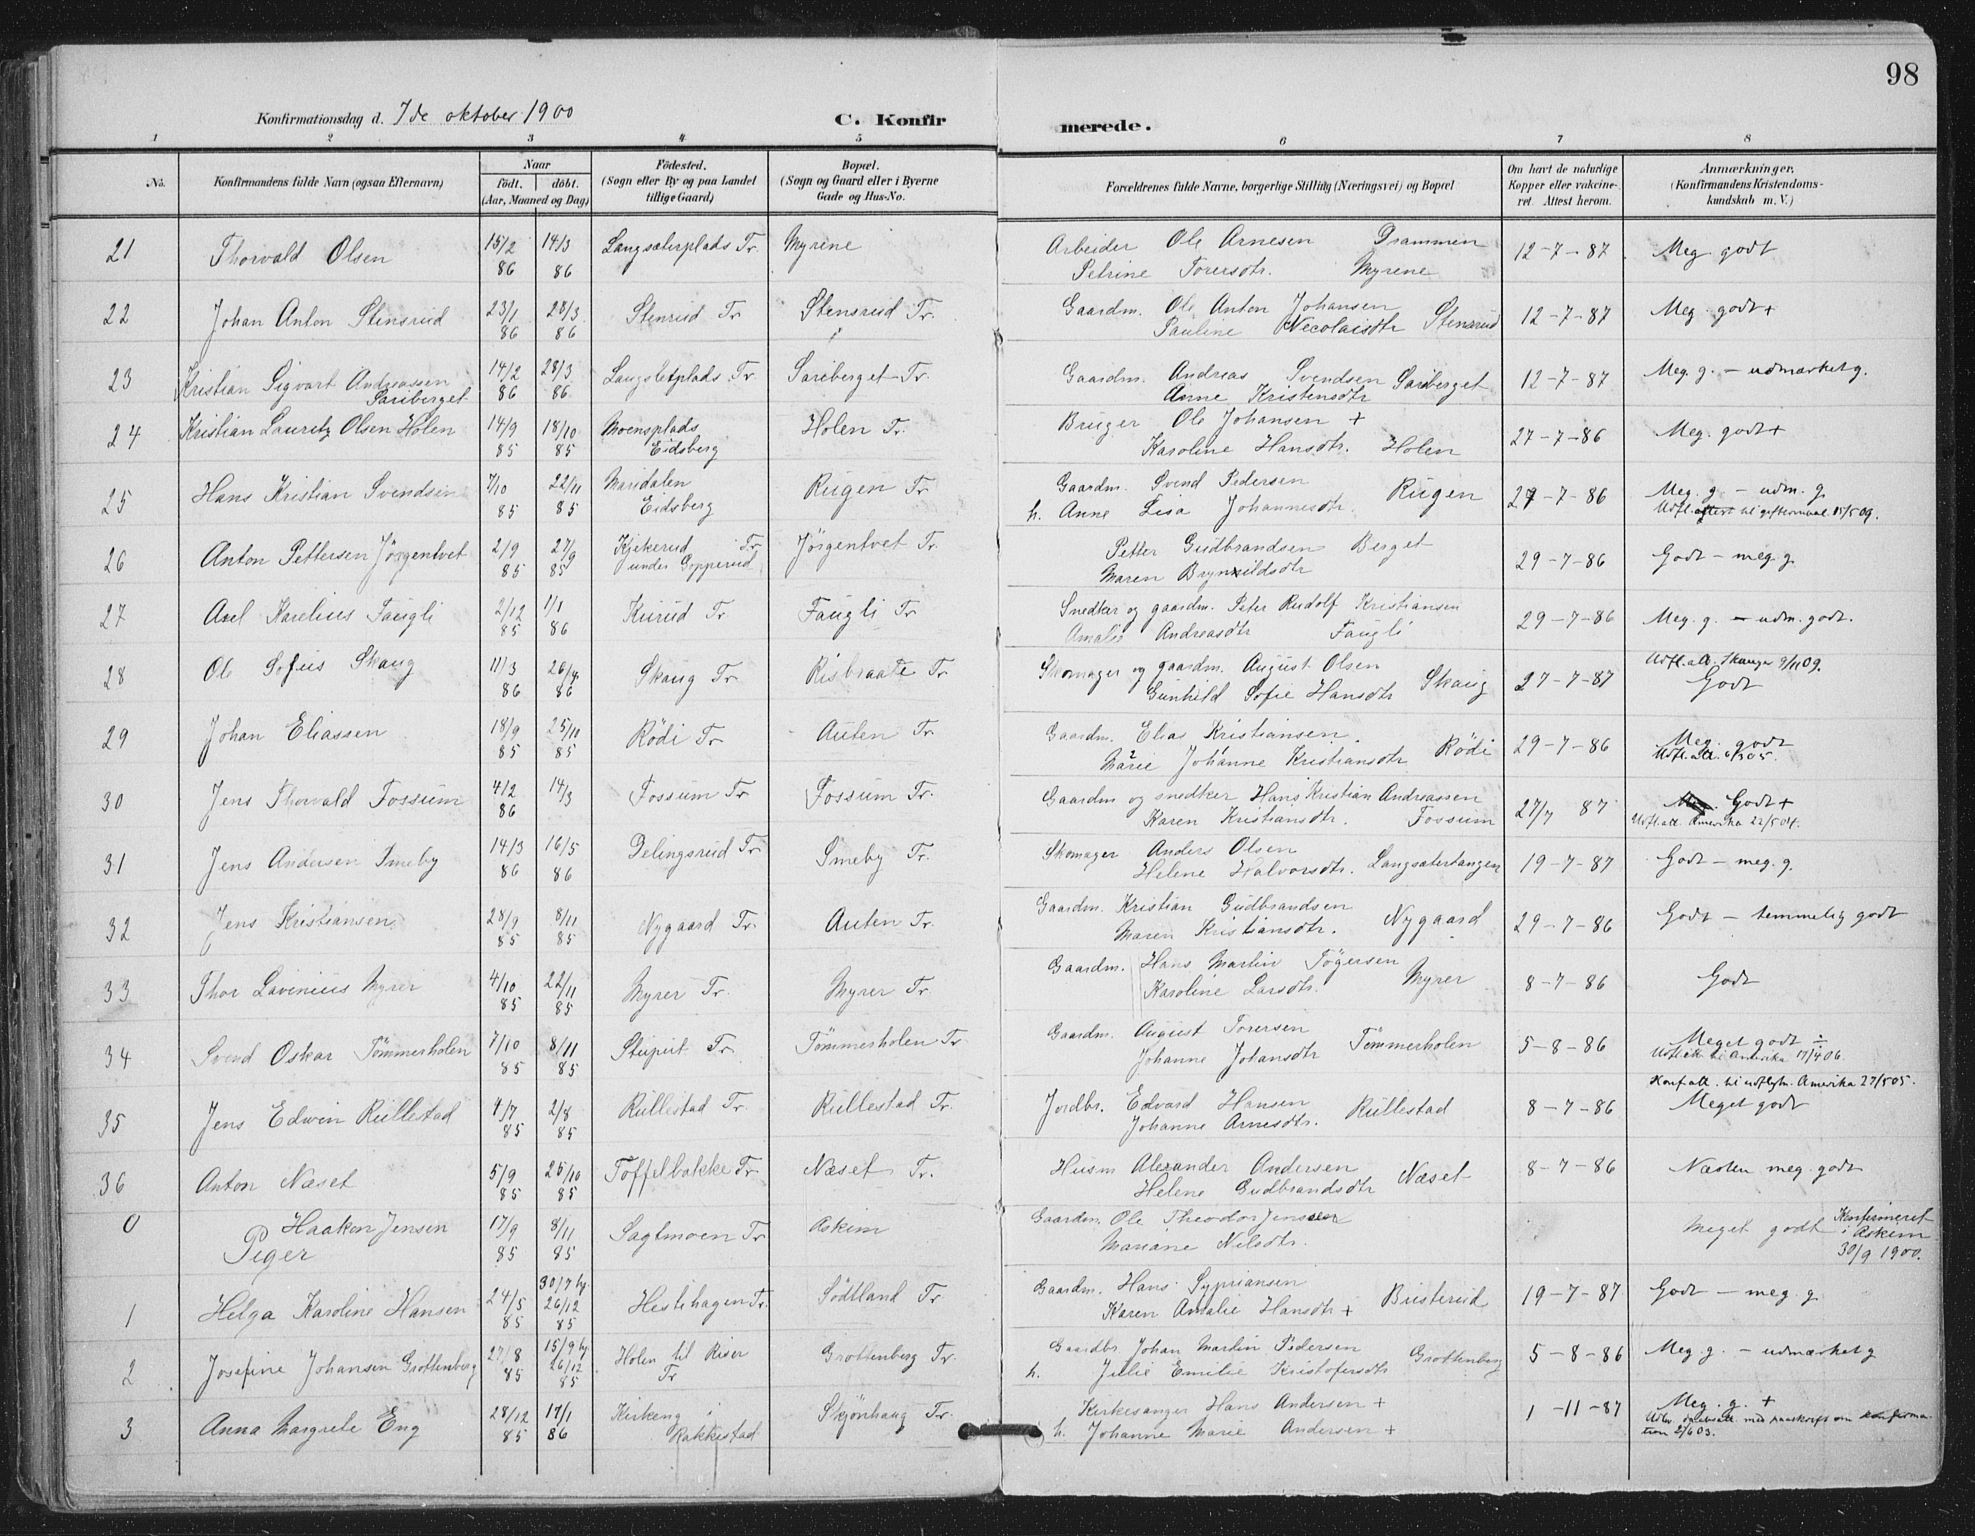 98
Konfirmationsdag d. 7de oktober 1900 C. Konfirmerede.
1 2 3 4 5 6 7 8
No. Konfirmandens fulde Navn (ogsaa Efternavn) Naar født. døbt. (Aar, Maaned og Dag) Fødested. (Sogn eller By og paa Landet tillige Gaard) Bopæl. (Sogn og Gaard eller i Byerne Gade og Hus-No. Forældrenes fulde Navne, borgerlige Stilling (Næringsvei) og Bopæl Om havt de naturlige Kopper eller vakcineret. Attest herom. Anmærkninger. (Konfirmandens Kristendomskundskab m. V.)
21 Thorvald Olsen 15/2 86 14/3 86 Langsæterplads Tr. Myrene Arbeider Ole Arnesen Drammen 12-7-87 Meg. godt
Petrine Torersdtr. Myrene
22 Johan Anton Stensrud 23/1 86 28/3 86 Stenrud Tr. Stensrud Tr. Gaardm. Ole Anton Johansen 12-7-87 Meg. godt +
Pauline Necolaisdtr Stensrud
23 Kristian Sigvart Andreassen Sariberget 14/2 86 28/3 86 Langsletplads Tr. Sariberget Tr. Gaardm. Andreas Svendsen Sariberget 12-7-87 Meg. g. – udmærket g.
Anne Kristensdtr
24 Kristian Lauritz Olsen Holen 14/9 85 18/10 85 Moensplads Eidsberg Holen Tr. Bruger Ole Johansen + 27-7-86 Meg. godt +
Karoline Hansdtr. Holen
25 Hans Kristian Svendsen 7/10 85 22/11 85 Maridalen Eidsberg Rugen Tr. Gaardm. Svend Pedersen Rugen 27-7-86 Meg. g. – udm. g.
h. Anne Lisa Johannesdtr. Udfl. attest til giftermaal 15/5 09.
26 Anton Pettersen Jørgentvet 2/9 85 27/9 85 Kjekerud Tr. under Gopperud Jørgentvet Tr. Petter Gudbrandsen Berget 29-7-86 Godt – meg. g.
Maren Brynildsdtr
27 Axel Karelius Faugli 2/12 85 1/1 86 Kurud Tr. Faugli Tr. Snedker og gaardm. Peter Rudolf Kristiansen 29-7-86 Meg. g. – udm. godt.
Amalie Andreasdtr Faugli
28 Ole Sofus Skaug 11/3 86 26/4 86 Skaug Tr. Risbraate Tr. Skomager og gaardm. August Olsen 27-7-87 Udfl. att. 9/11 09.
Gunhild Sofie Hansdtr Skaug Godt
29 Johan Eliassen 18/9 85 25/10 85 Rødi Tr. Auten Tr. Gaardm. Elias Kristiansen Rødi 29-7-86 Meg. godt
Marie Johanne Kristiansdtr. Udfl. att. 6/3 05.
30 Jens Thorvald Fossum 4/2 86 14/3 Fossum Tr. Fossum Tr. Gaardm og snedker Hans Kristian Andreassen 27/7 87 Godt +
Karen Kristiansdtr. Fossum Udfl. att. Amerika 22/5 04.
31 Jens Andersen Smeby 14/3 86 16/5 86 Delingsrud Tr. Smeby Tr. Skomager Anders Olsen 19-7-87 Godt – meg. g.
Helene Halvorsdtr. Langsætertangen
32 Jens Kristiansen 28/9 85 8/11 85 Nygaard Tr. Auten Tr. Gaardm. Kristian Gudbrandsen Nygaard 29-7-86 Godt – temmelig godt
Maren Kristiansdtr.
33 Thor Lavinius Myrer 4/10 85 22/11 85 Myrer Tr. Myrer Tr. Gaardm. Hans Martin Tøgersen Myrer 8-7-86 Godt
Karoline Larsdtr.
34 Svend Oskar Tømmerholen 7/10 85 8/11 85 Stuput Tr. Tømmerholen Tr. Gaardm. August Torersen Tømmerholen 5-8-86 Meget godt ÷
Johanne Johansdtr Udfl. att. til Amerika 17/4 06.
Konf. att. til udflytn. Amerika 27/5 05.
35 Jens Edwin Rullestad 4/7 85 2/8 85 Rullestad Tr. Rullestad Tr. Jordbr. Edvard Hansen Rullestad 8-7-86 Meget godt
Johanne Arnesdtr.
36 Anton Næset 5/9 85 25/10 85 Toffelbakke Tr. Næset Tr. Husm Alexander Andersen Næset 8-7-86 Næsten meg. godt
Helene Gudbrandsdtr
0 Haakon Jensen 17/9 85 8/11 85 Sagtmoen Tr. Askim Gaardm. Ole Theodor Jenssen Meget godt Konfirmeret i Askim 30/9 1900.
Mariane Nilsdtr.
Piger
1 Helga Karoline Hansen 24/5 85 30/7 hj. 26/12 85 Hestehagen Tr. Sødtland Tr. Gaardm. Hans Sypriansen Busterud 19-7-87 Godt – meg. g.
Karen Amalie Hansdtr +
2 Josefine Johansen Grottenberg 27/8 85 15/9 hj. 26/12 85 Holen til Riser Tr Grottenberg Tr. Gaardbr. Johan Martin Pedersen Grottenberg 5-8-86 Meg. g. – udmærket g
h. Julie Emilie Kristofersdtr
3 Anna Margrete Eng 28/12 85 17/1 86 Kirkeng i Rakkestad Skjønhaug Tr. Kirkesanger Hans Andersen + 1-11-87 Meg. g. +
h. Johanne Marie Andersen + med paaskrift om konfirmation 2/6 03.